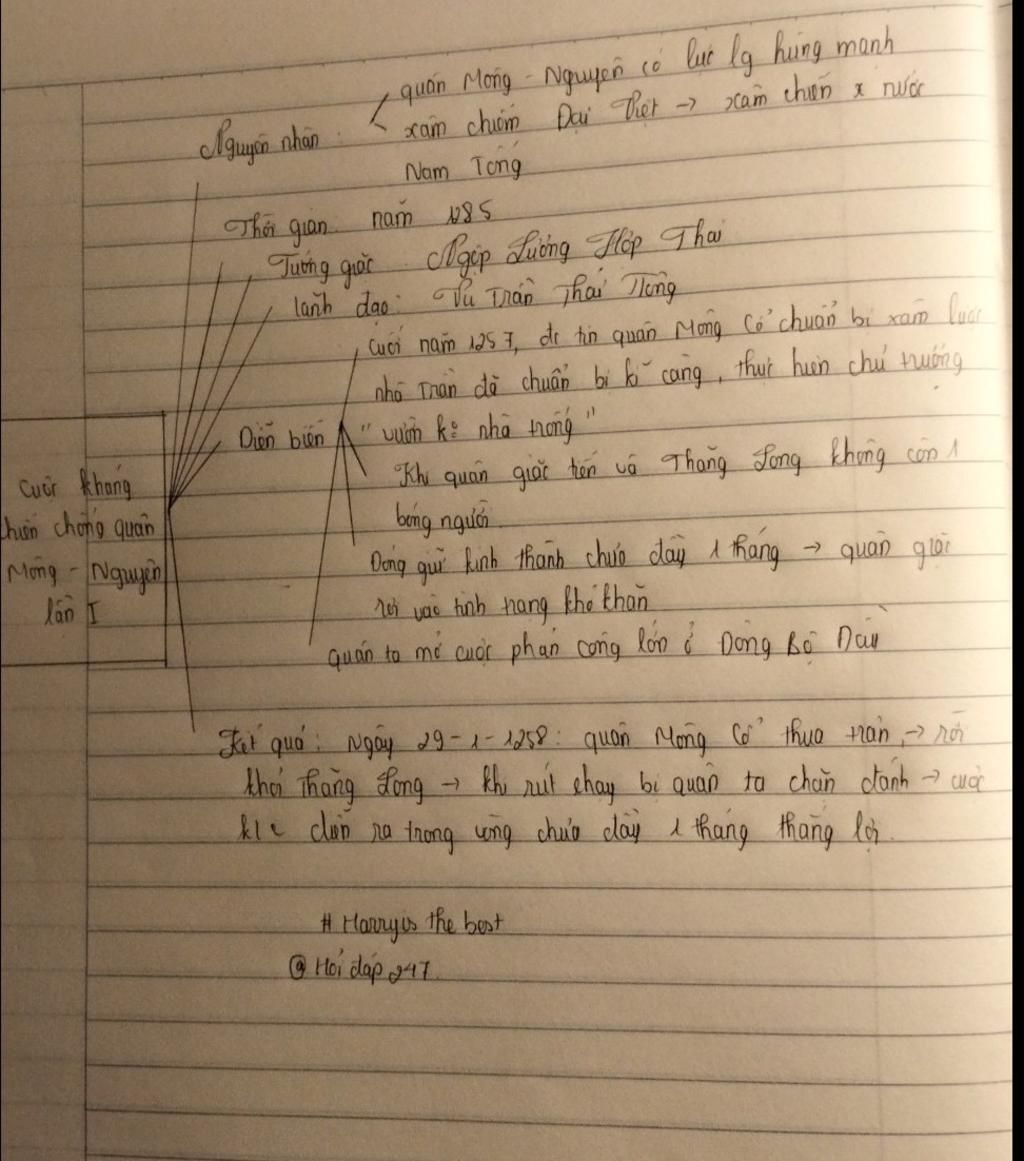 quân Mông - Nguyên có lực lg hùng mạnh
Nguyên nhân:
xâm chiếm Đại Việt → xâm chiến x nước
Nam Tống
Thời gian năm 1285
Tướng giặc Ngộp Lương Hộp Thai
lãnh đạo: Vu Trần Thái Tông
cuối năm 1257, đc tin quân Mông Cổ chuẩn bị xâm lược
nhà Trần đã chuẩn bị kĩ càng, thực hiện chủ trương
Diễn biến " vườn k° nhà trống "
Khi quân giặc tiến vô Thăng Long không còn 1
bóng người
Đóng giữ kinh thành chưa đầy 1 tháng → quân giặc
rơi vào tình trạng khó khăn
quân ta mở cuộc phản công lớn ở Đông Bộ Đầu
Cuộc kháng
chiến chống quân
Mông - Nguyên
lần I
Kết quả: Ngày 29-1-1258: quân Mông Cổ thua trận, → rời
khỏi Thăng Long → khi rút chạy bị quân ta chặn đánh → cuộc
diễn ra trong vòng chưa đầy 1 tháng thắng lợi.
# Harryis the best
@ Hoi dap 247